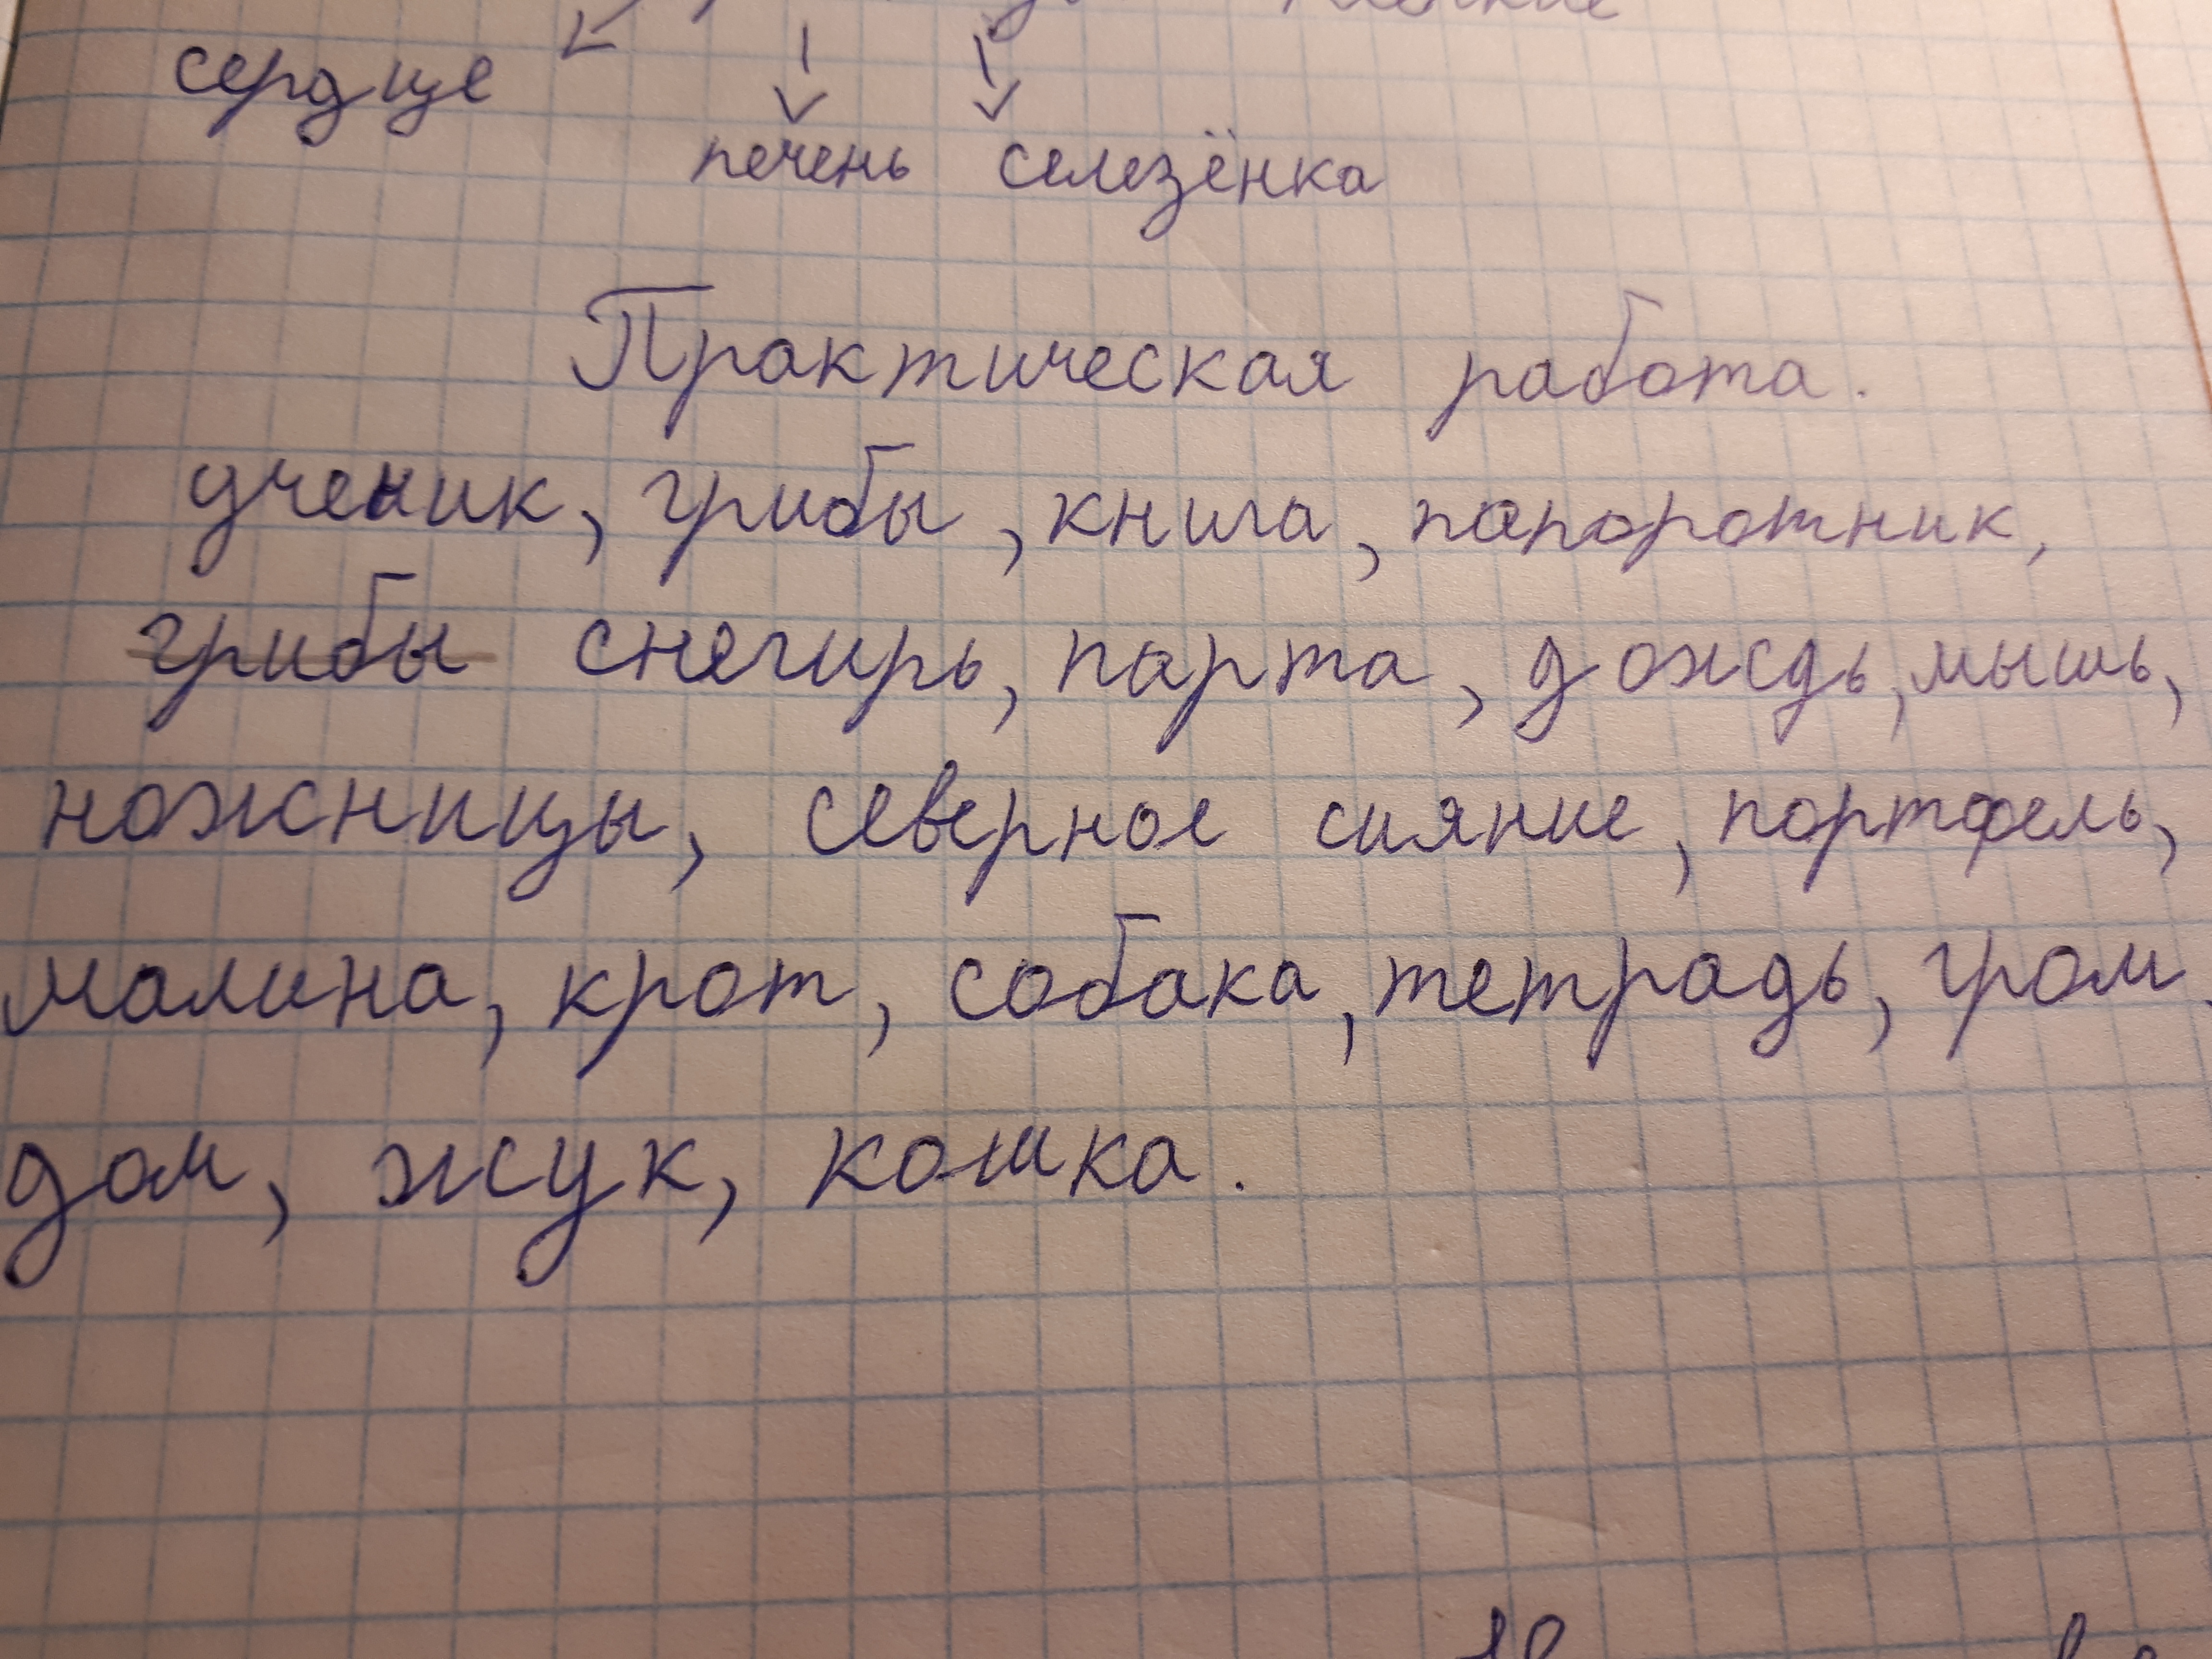 сердце
печень селезёнка
Практическая работа.
ученик, грибы, книга, папоротник,
грибы снегирь, парта, дождь, мышь,
ножницы, северное сияние, портфель,
малина, крот, собака, тетрадь, гром.
дом, жук, кошка.